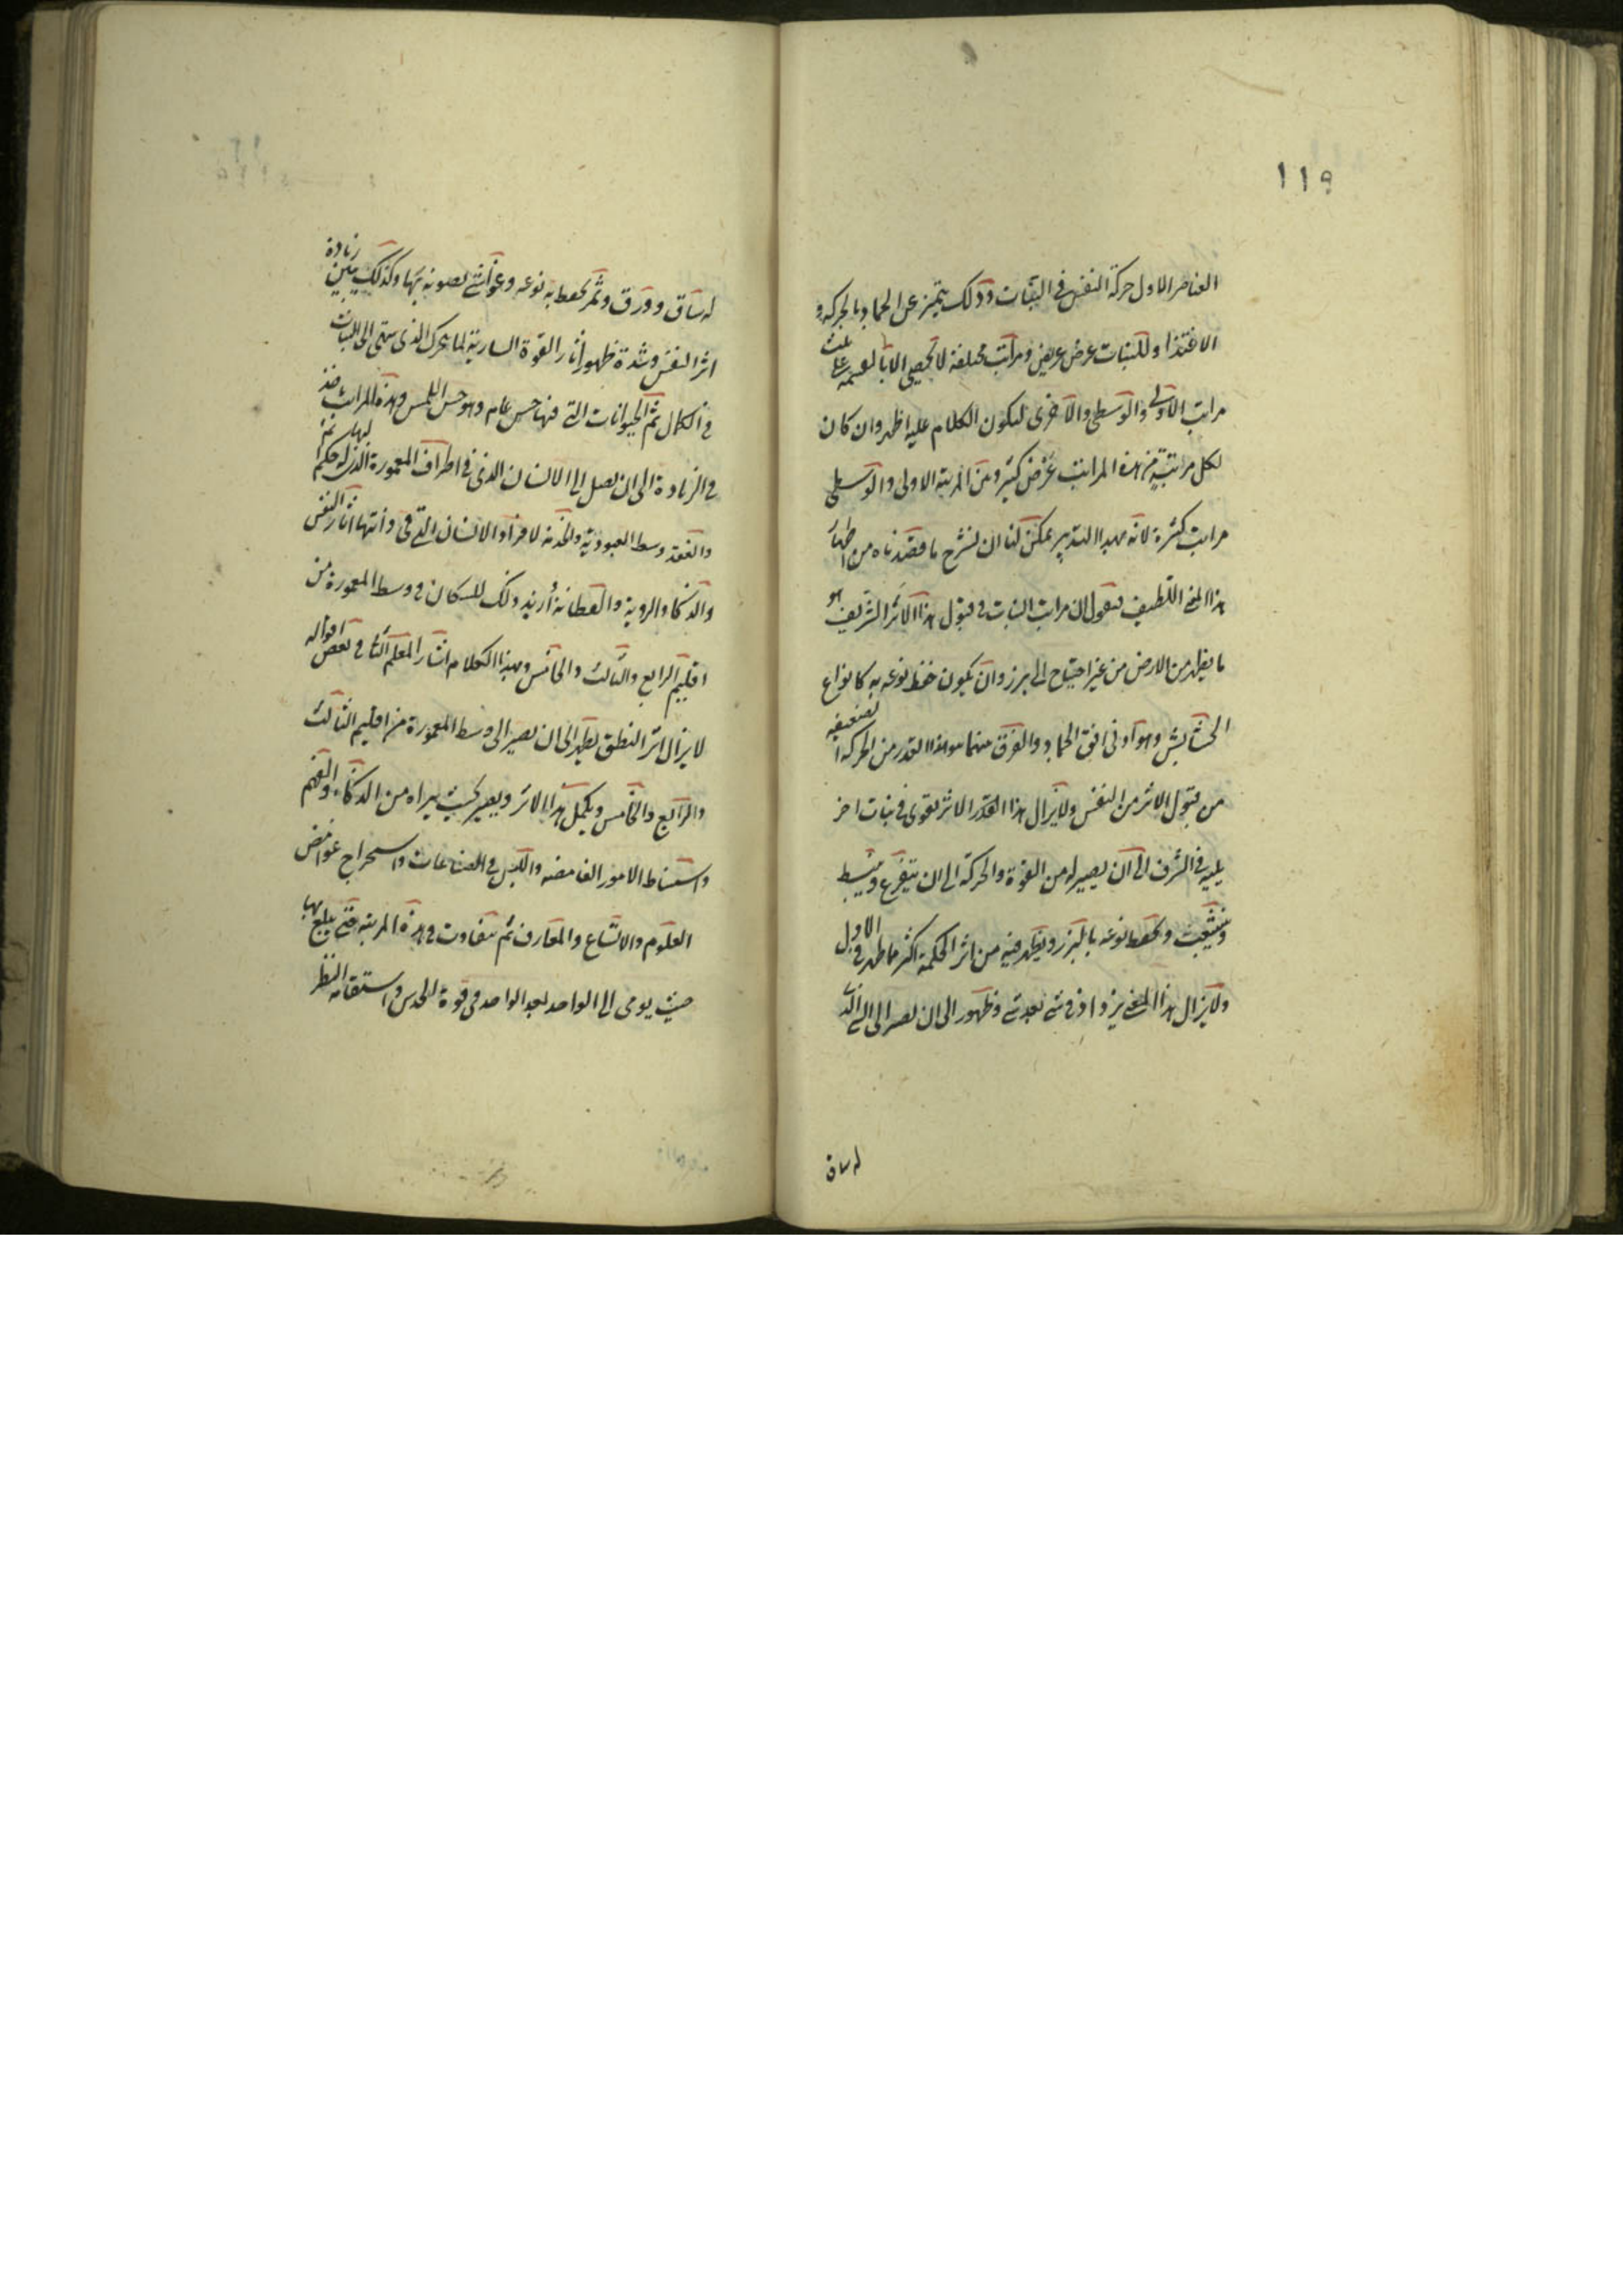 ١١٩
العناصر الاول حركة النفس في النبات وذلك يتميز عن الجماد بالحركة و
الاغتذا وللنبات عرض عريض ومراتب مختلفة لا تحصى الا بالقسمة على ثلث
مراتب الاولى والوسطى والاخرى ليكون الكلام عليه اظهر وان كان
لكل مرتبة من هذه المراتب غرض كثير وبين المرتبة الاولى والوسطى
مراتب كثيرة لانه بهذا التدبير يمكن لنا ان نشرح ما قصدناه من اظهار
هذا المعنى اللطيف فنقول ان مراتب النبات في قبول هذا الاثر الشريف هو
ما يظهر من الارض من غير احتياج الى بزر وان يكون حفظ نوعه به كانواع
الحشايش وهو ادنى افق الجماد والفرق بينهما هو هذا القدر من الحركة الضعيفة
من قبول الاثر من النفس ولا يزال هذا القدر الاثر يقوى في نبات اخر
يليه في الشرف الى ان يصير له من القوة والحركة الى ان يتفرع وينبسط
ويتشعب ويحفظ نوعه بالبزر ويظهر فيه من اثر الحكمة اكثر مما ظهر في الاول
ولا يزال هذا المعنى يزداد في شي بعد شي وظهور الى ان يصير الى الذى
له ساق
له ساق وورق وثمر يحفظ به نوعه وغواشى يصونه بها وكذلك يبين زيادة
اثر النفس وشدة ظهور اثار القوة السارية لما يتحرك الذى ينتهى الى النبات
في الكمال ثم الحيوانات التى فيها حس عام وهو حس اللمس وهذه المراتب
في الزيادة الى ان يصل الى الانسان الذى في اطراف المعمورة الذى حكم لهم
والفقد وسط العبودية والخدمة لافراد الانسان التى في ذاتها اثار النفس
والذكاء والروية والفطانة أزيد وذلك للسكان في وسط المعمورة من
اقليم الرابع والثالث والخامس وبهذا الكلام اشار المعلم الثانى في بعض اقواله
لا يزال اثر النطق يظهر الى ان يصير الى وسط المعمورة من اقليم الثالث
والرابع والخامس ويكمل هذا الاثر ويصير بحيث يراه من الذكاء والفهم
واستنباط الامور الغامضه والكيل في الصناعات واستخراج غوامض
العلوم والاتساع والمعارف ثم يتفاوت في هذه المرتبة حتى يبلغ بها
حيث يومى الى الواحد بعد الواحد في قوة الحدس واستقامة النظر